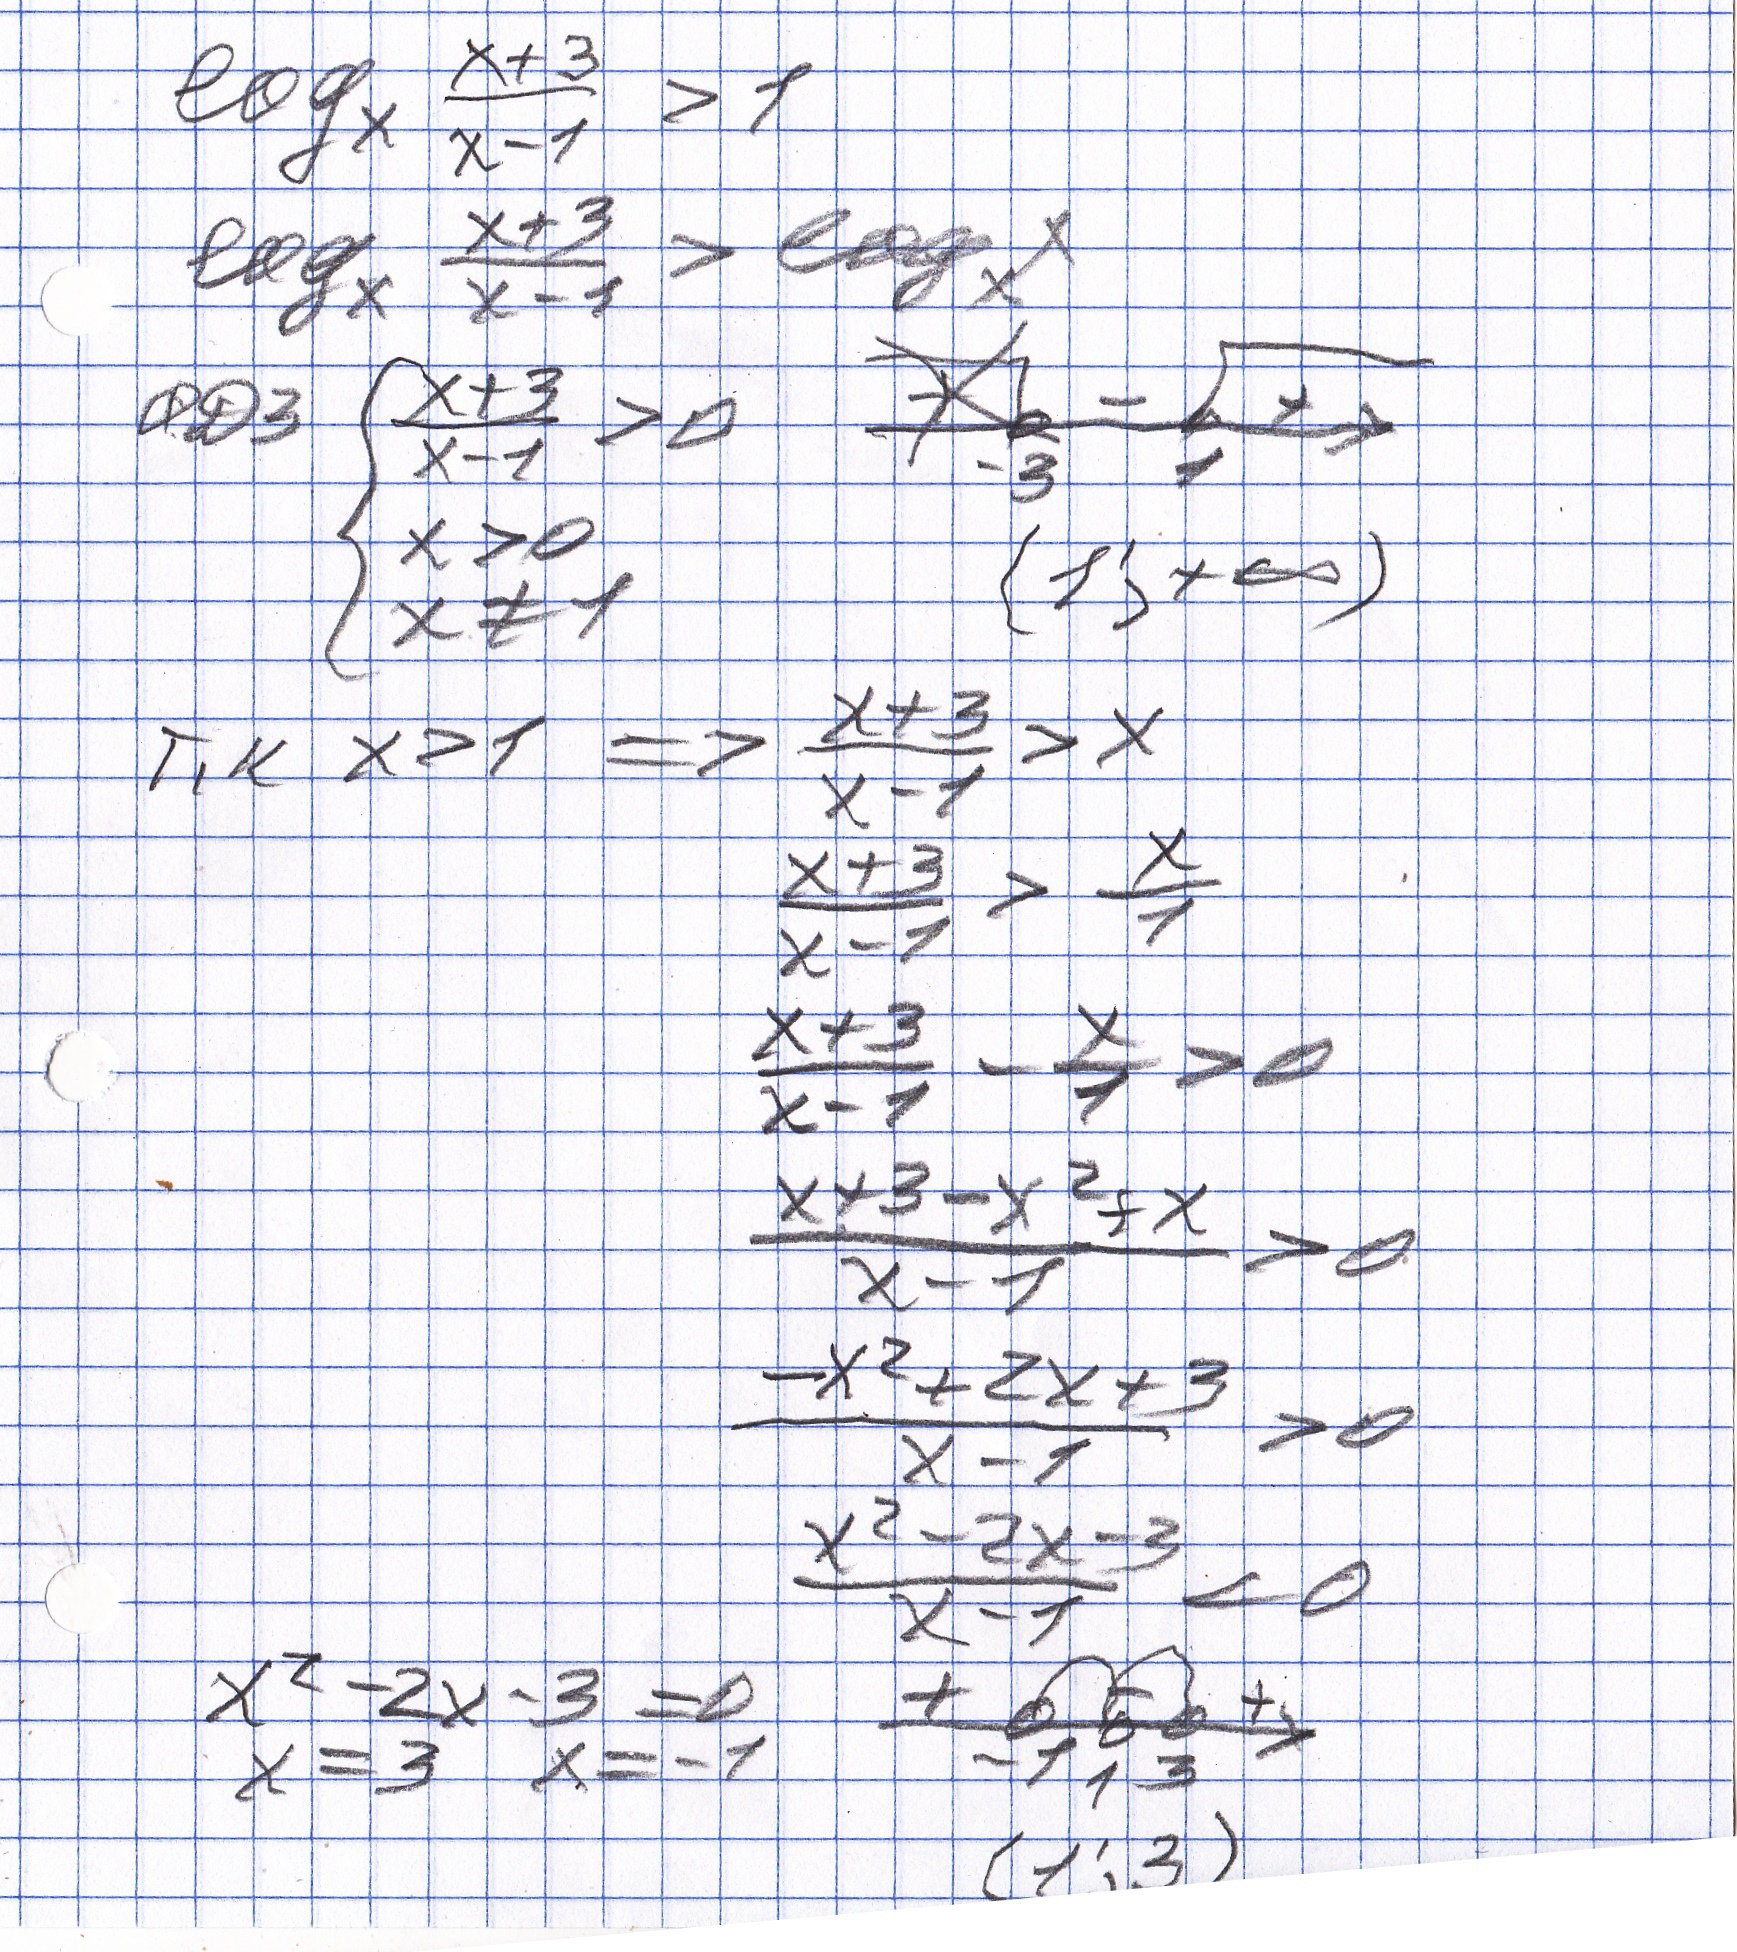 log_x (x+3)/(x-1) > 1
log_x (x+3)/(x-1) > log_x x
ОДЗ { (x+3)/(x-1) > 0
x > 0
x ≠ 1
+ - +
-3 1
(1; +∞)
т.к x > 1 => (x+3)/(x-1) > x
(x+3)/(x-1) > x/1
(x+3)/(x-1) - x/1 > 0
(x+3-x²+x)/(x-1) > 0
(-x²+2x+3)/(x-1) > 0
(x²-2x-3)/(x-1) < 0
x²-2x-3=0
x=3 x=-1
+ - +
-1 1 3
(1; 3)